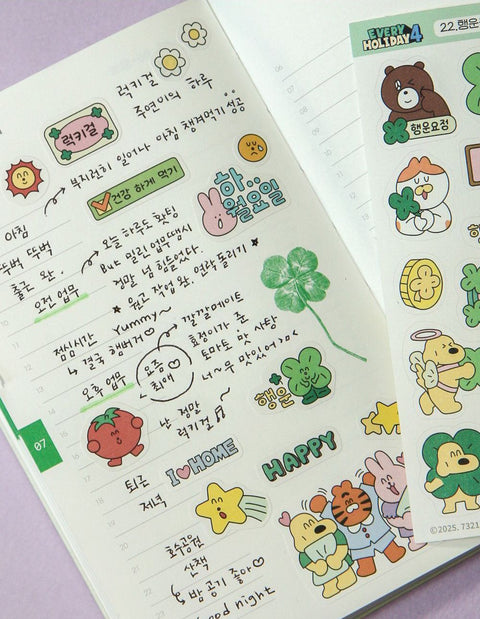 럭키걸
주연이의 하루
럭키걸
부지런히 일어나 아침 챙겨먹기 성공
건강 하게 먹기
하
월요일
아침
뚜벅 뚜벅
출근 완.
오전 업무
오늘 하루도 홧팅
But 밀린 업무땜시
정말 넘 힘들었다.
★ 원고 작업 완, 연락 돌리기 ★
점심시간
Yummy~
↳ 결국 햄버거♡
오후 업무
요즘
최애
깔깔메이트
효정이가 준
토마토 맛 사탕
너~무 맛있어>.<
행운
난 정말
럭키걸♬
퇴근
I ♥ HOME
HAPPY
저녁
호수공원
산책
밤 공기 좋아♡
Good night
07
10
11
12
13
14
15
16
17
18
20
21
22
23
06
07
08
09
EVERY
HOLIDAY 4
22.행운
행운요정
©2025. 7321